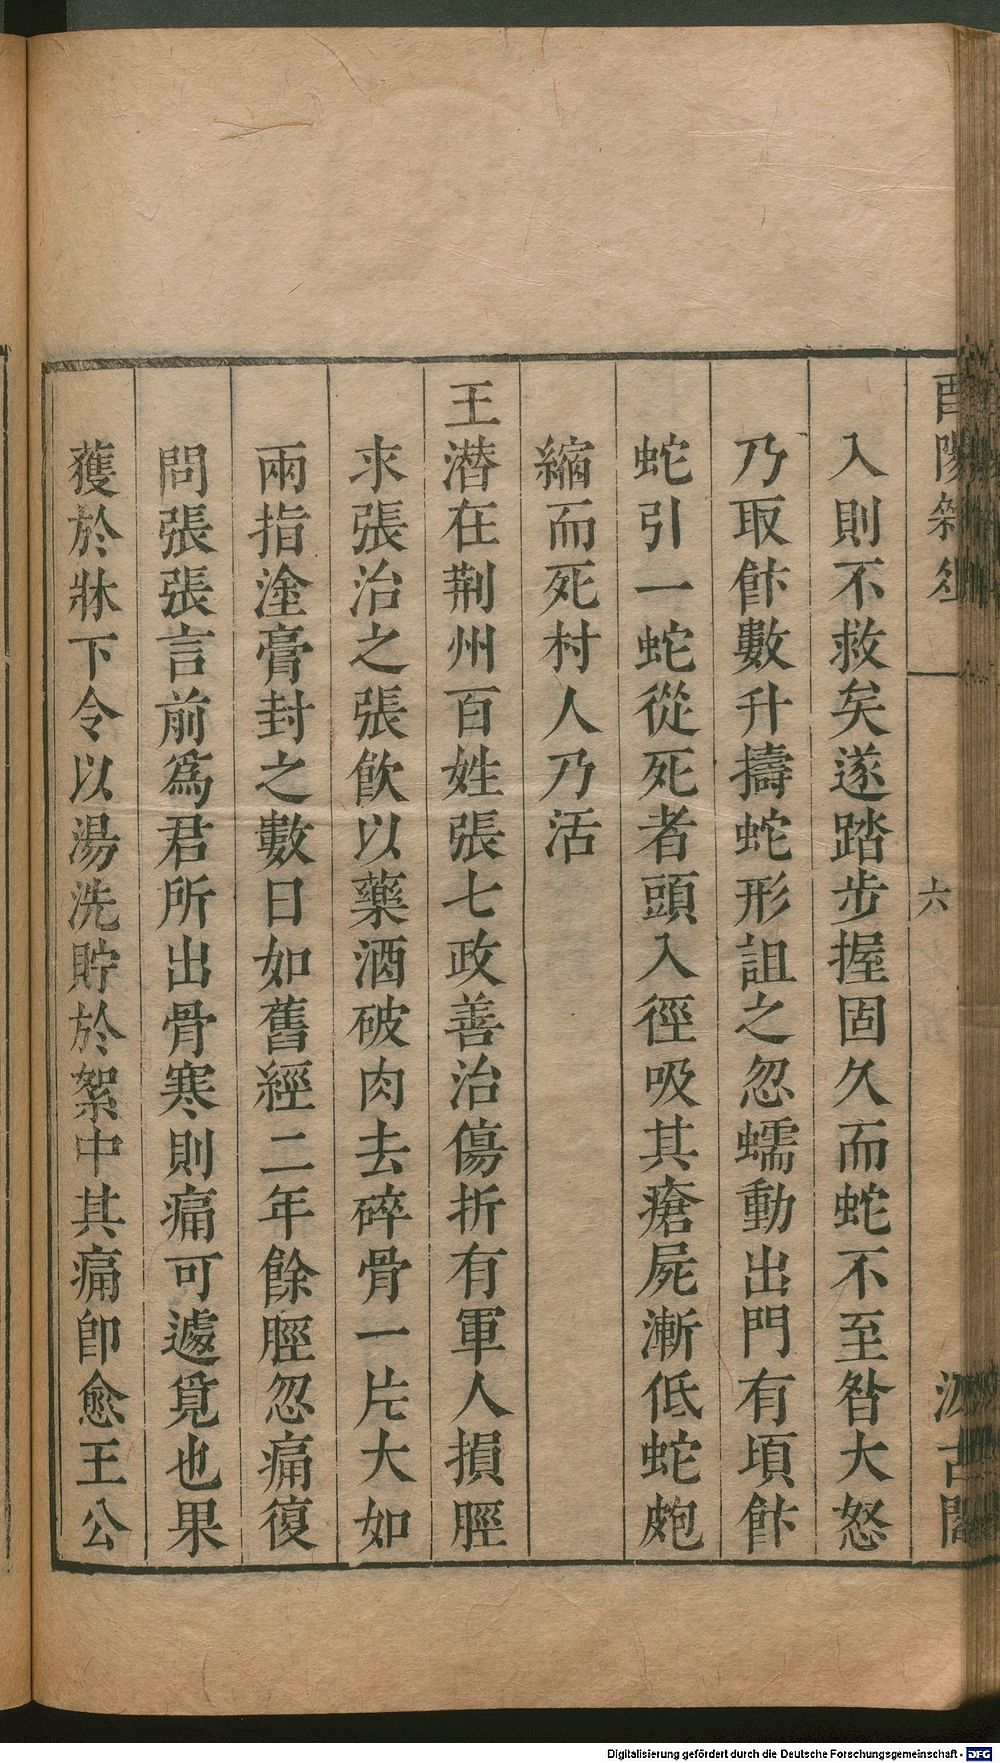 酉陽雜俎
六
汲古閣
入則不救矣遂踏步握固久而蛇不至昝大怒
乃取飰數升擣蛇形詛之忽蠕動出門有頃飰
蛇引一蛇從死者頭入徑吸其瘡屍漸低蛇皰
縮而死村人乃活
王潜在荆州百姓張七政善治傷折有軍人損脛
求張治之張飲以藥酒破肉去碎骨一片大如
兩指塗膏封之數日如舊經二年餘脛忽痛復
問張張言前爲君所出骨寒則痛可遽覓也果
獲於牀下令以湯洗貯於絮中其痛卽愈王公
Digitalisierung gefördert durch die Deutsche Forschungsgemeinschaft - DFG